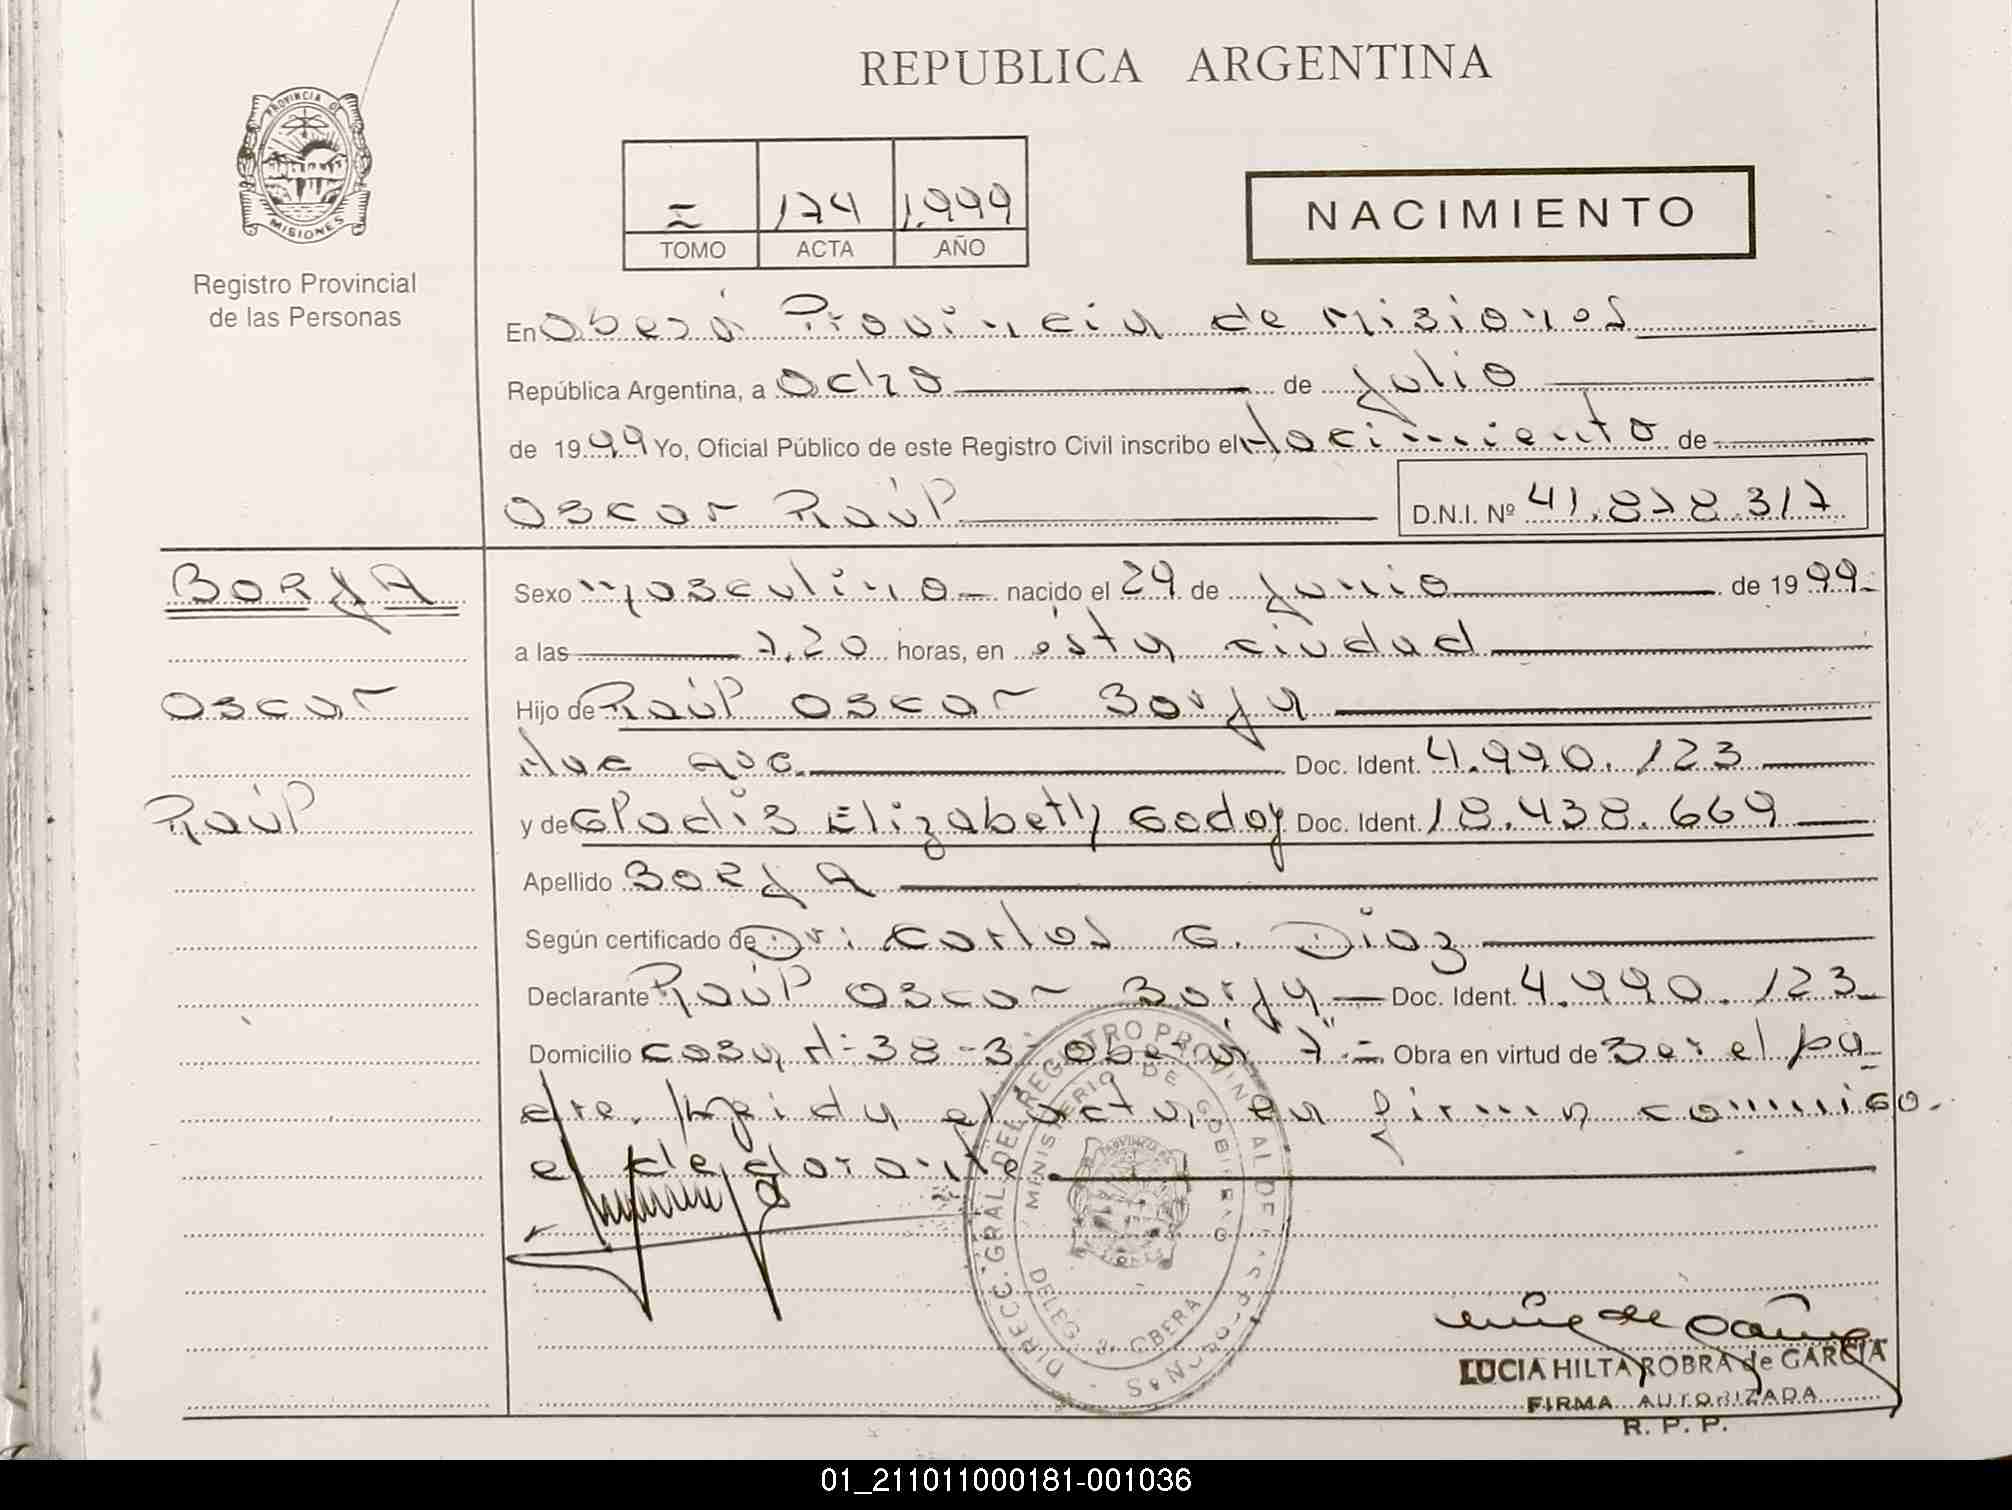 REPUBLICA ARGENTINA
PROVINCIA DE
MISIONES
Registro Provincial
de las Personas
= 174 1.999
TOMO ACTA AÑO
NACIMIENTO
En Oberá Provincia de Misiones
República Argentina, a Ocho de Julio
de 1999 Yo, Oficial Público de este Registro Civil inscribo el Nacimiento de
Oscar Raúl D.N.I. Nº 41.878.317
BORJA
Oscar
Raúl
Sexo Masculino nacido el 29 de Junio de 1999
a las 7.20 horas, en ésta ciudad
Hijo de Raúl Oscar Borja
Doc. Ident. 4.990.123
y de Gladis Elizabeth Godoy Doc. Ident. 18.438.669
Apellido BORJA
Según certificado de Dr: Carlos G. Diaz
Declarante Raúl Oscar Borja Doc. Ident. 4.990.123
Domicilio casa Nº 38 - 3 - Oberá "7" = Obra en virtud de ser el pa
dre. Leida el acta, la firma conmigo
el declarante.
DIRECC. GRAL. DEL REGISTRO PROVINCIAL DE LAS PERSONAS
MINISTERIO DE GOBIERNO
DELEG. OBERA
LUCIA HILTA ROBRA de GARCIA
FIRMA AUTORIZADA
R. P. P.
01_211011000181-001036